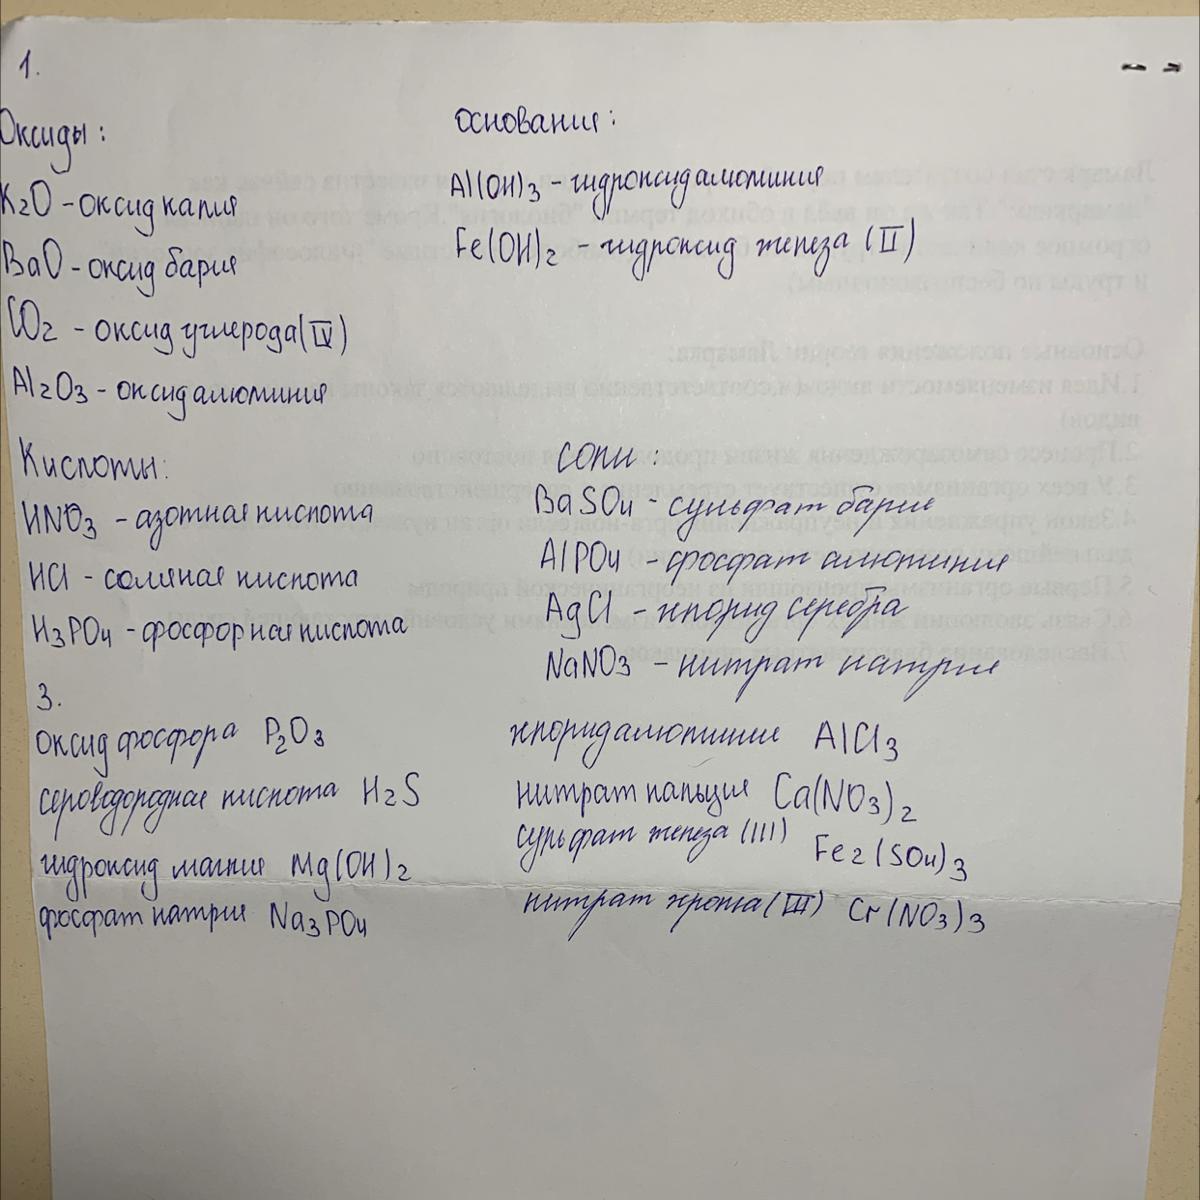 1.
Оксиды:
K2O - оксид калия
BaO - оксид бария
CO2 - оксид углерода (IV)
Al2O3 - оксид алюминия
Основание:
Al(OH)3 - гидроксид алюминия
Fe(OH)2 - гидроксид железа (II)
Кислоты:
HNO3 - азотная кислота
HCl - соляная кислота
H3PO4 - фосфорная кислота
Соли:
BaSO4 - сульфат бария
AlPO4 - фосфат алюминия
AgCl - хлорид серебра
NaNO3 - нитрат натрия
3.
оксид фосфора P2O3
сероводородная кислота H2S
гидроксид магния Mg(OH)2
фосфат натрия Na3PO4
хлорид алюминия AlCl3
нитрат кальция Ca(NO3)2
сульфат железа (III) Fe2(SO4)3
нитрат хрома (III) Cr(NO3)3